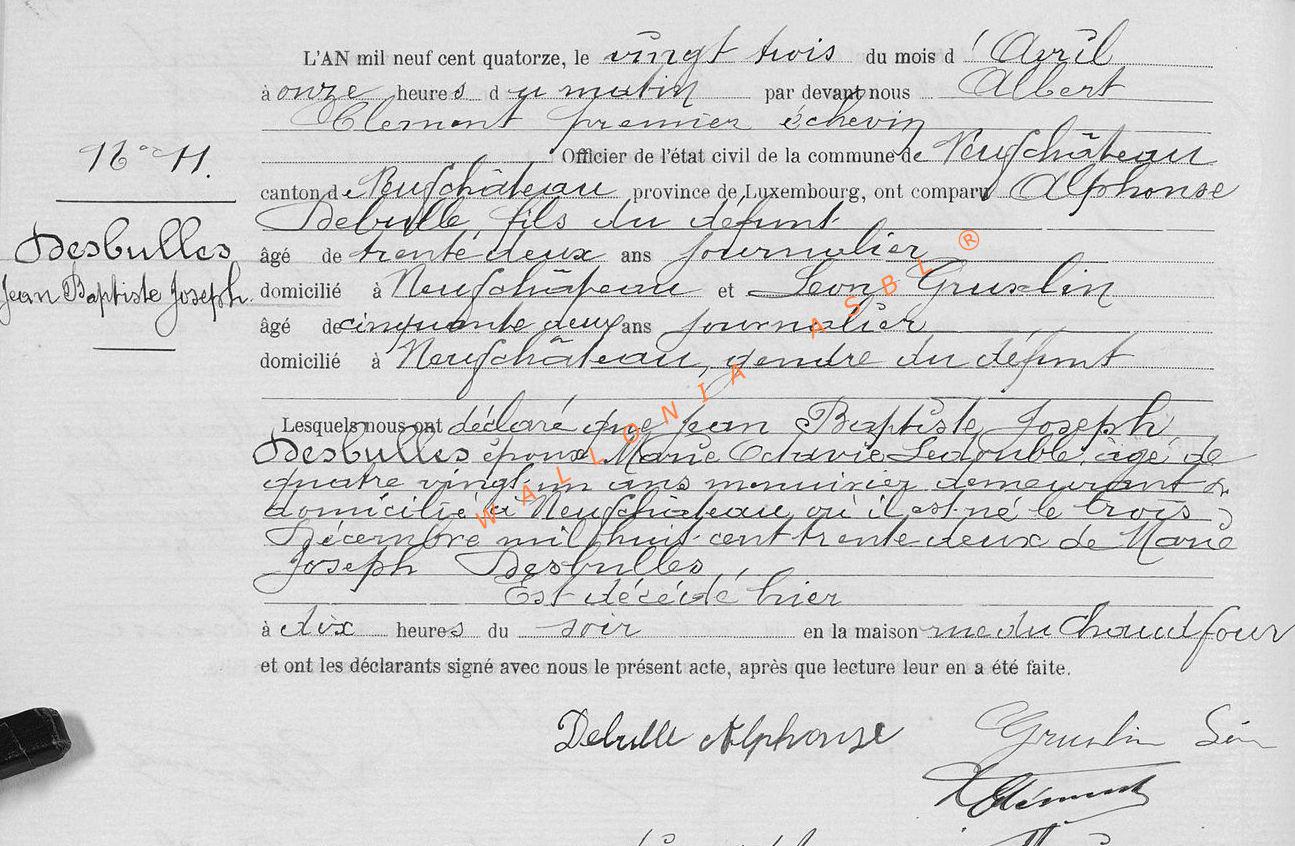 L'AN mil neuf cent quatorze, le vingt trois du mois d'Avril
à onze heures du matin par devant nous Albert
Clement premier échevin
Officier de l'état civil de la commune de Neufchâteau
N° 11.
canton de Neufchâteau province de Luxembourg, ont comparu Alphonse
Debulle, fils du défunt
Desbulles
Jean Baptiste Joseph
âgé de trente deux ans journalier
domicilié à Neufchâteau et Léon Gruslin
âgé de cinquante deux ans journalier
domicilié à Neufchâteau, gendre du défunt
Lesquels nous ont déclaré que Jean Baptiste Joseph
Desbulles époux Marie Octavie Ledouble, âgé de
quatre vingt un ans menuisier demeurant &
domicilié à Neufchâteau où il est né le trois
Décembre mil huit cent trente deux de Marie
Joseph Desbulles
Est décédé hier
à dix heures du soir en la maison rue du Chaud four
et ont les déclarants signé avec nous le présent acte, après que lecture leur en a été faite.
Debulle Alphonse Gruslin
Clément
WALLONIA ASBL ®